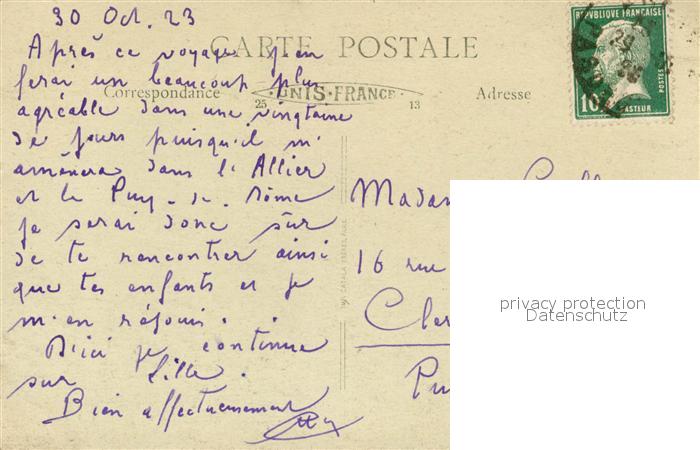 30 Oct. 23
CARTE POSTALE
Correspondance
UNIS-FRANCE
25
13
Adresse
REPUBLIQUE FRANÇAISE
POSTES
10
PASTEUR
Après ce voyage j'en
ferai un beaucoup plus
agréable dans une vingtaine
de jours puisqu'il m'
amènera dans l'Allier
et le Puy-de-Dôme
je serai donc sûr
de te rencontrer ainsi
que tes enfants et je
m'en réjouis.
D'ici je continue
sur Lille.
Bien affectueusement
Madam
16 rue
Cler
Pu
privacy protection
Datenschutz